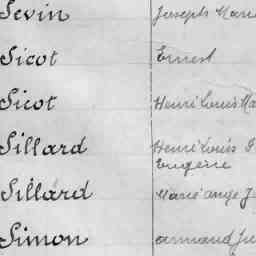 Sevin Joseph Marie
Sicot Ernest
Sicot Henri Louis Ma
Sillard Henri Louis
Eugène
Sillard Marie Ange J
Simon Armand Ju